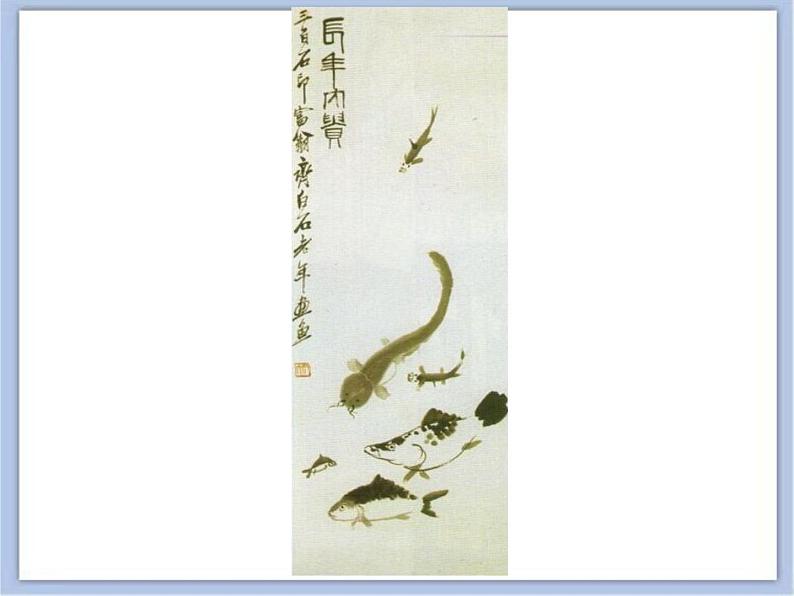 長年大貴
三百石印富翁齊白石老年畫魚